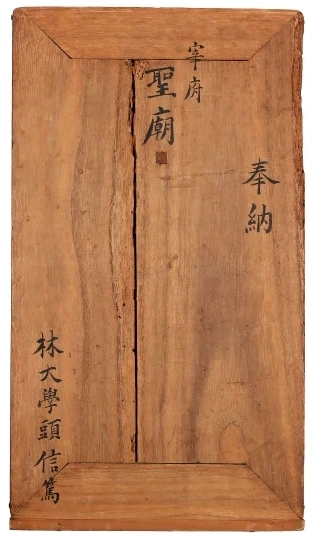 奉納
宰府
聖廟
林大學頭信篤